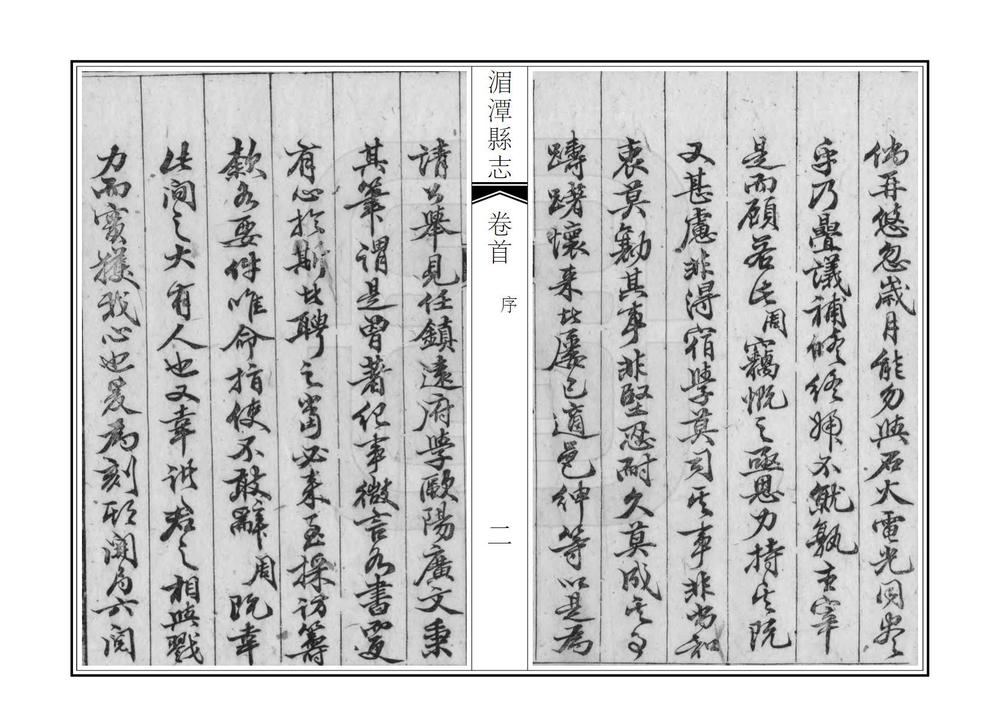 倘再悠忽歲月能勿與石火電光同盡
乎乃疊議補修終歸不就孰主宰
是而顧若此周竊慨之亟思力持其既
又甚慮非得宿學莫司其事非當和
衷莫勷其事非堅忍耐久莫成其事
躊躇懷來比屢已適邑紳等以是為
請公舉見任鎮遠府學歐陽廣文秉
其筆謂是曾著紀事微言各書夐
有心於斯者聘之當必來至採訪籌
款各要件唯命指使不敢辭周既幸
此間之大有人也又幸諸君之相與戮
力而實獲我心也爰為刻期開局六閱
湄潭縣志
卷首
序
二